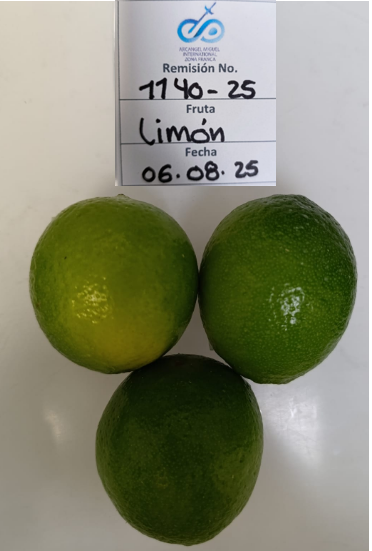 ARCANGEL MIGUEL
INTERNATIONAL
ZONA FRANCA
Remisión No.
1140-25
Fruta
Limón
Fecha
06.08.25